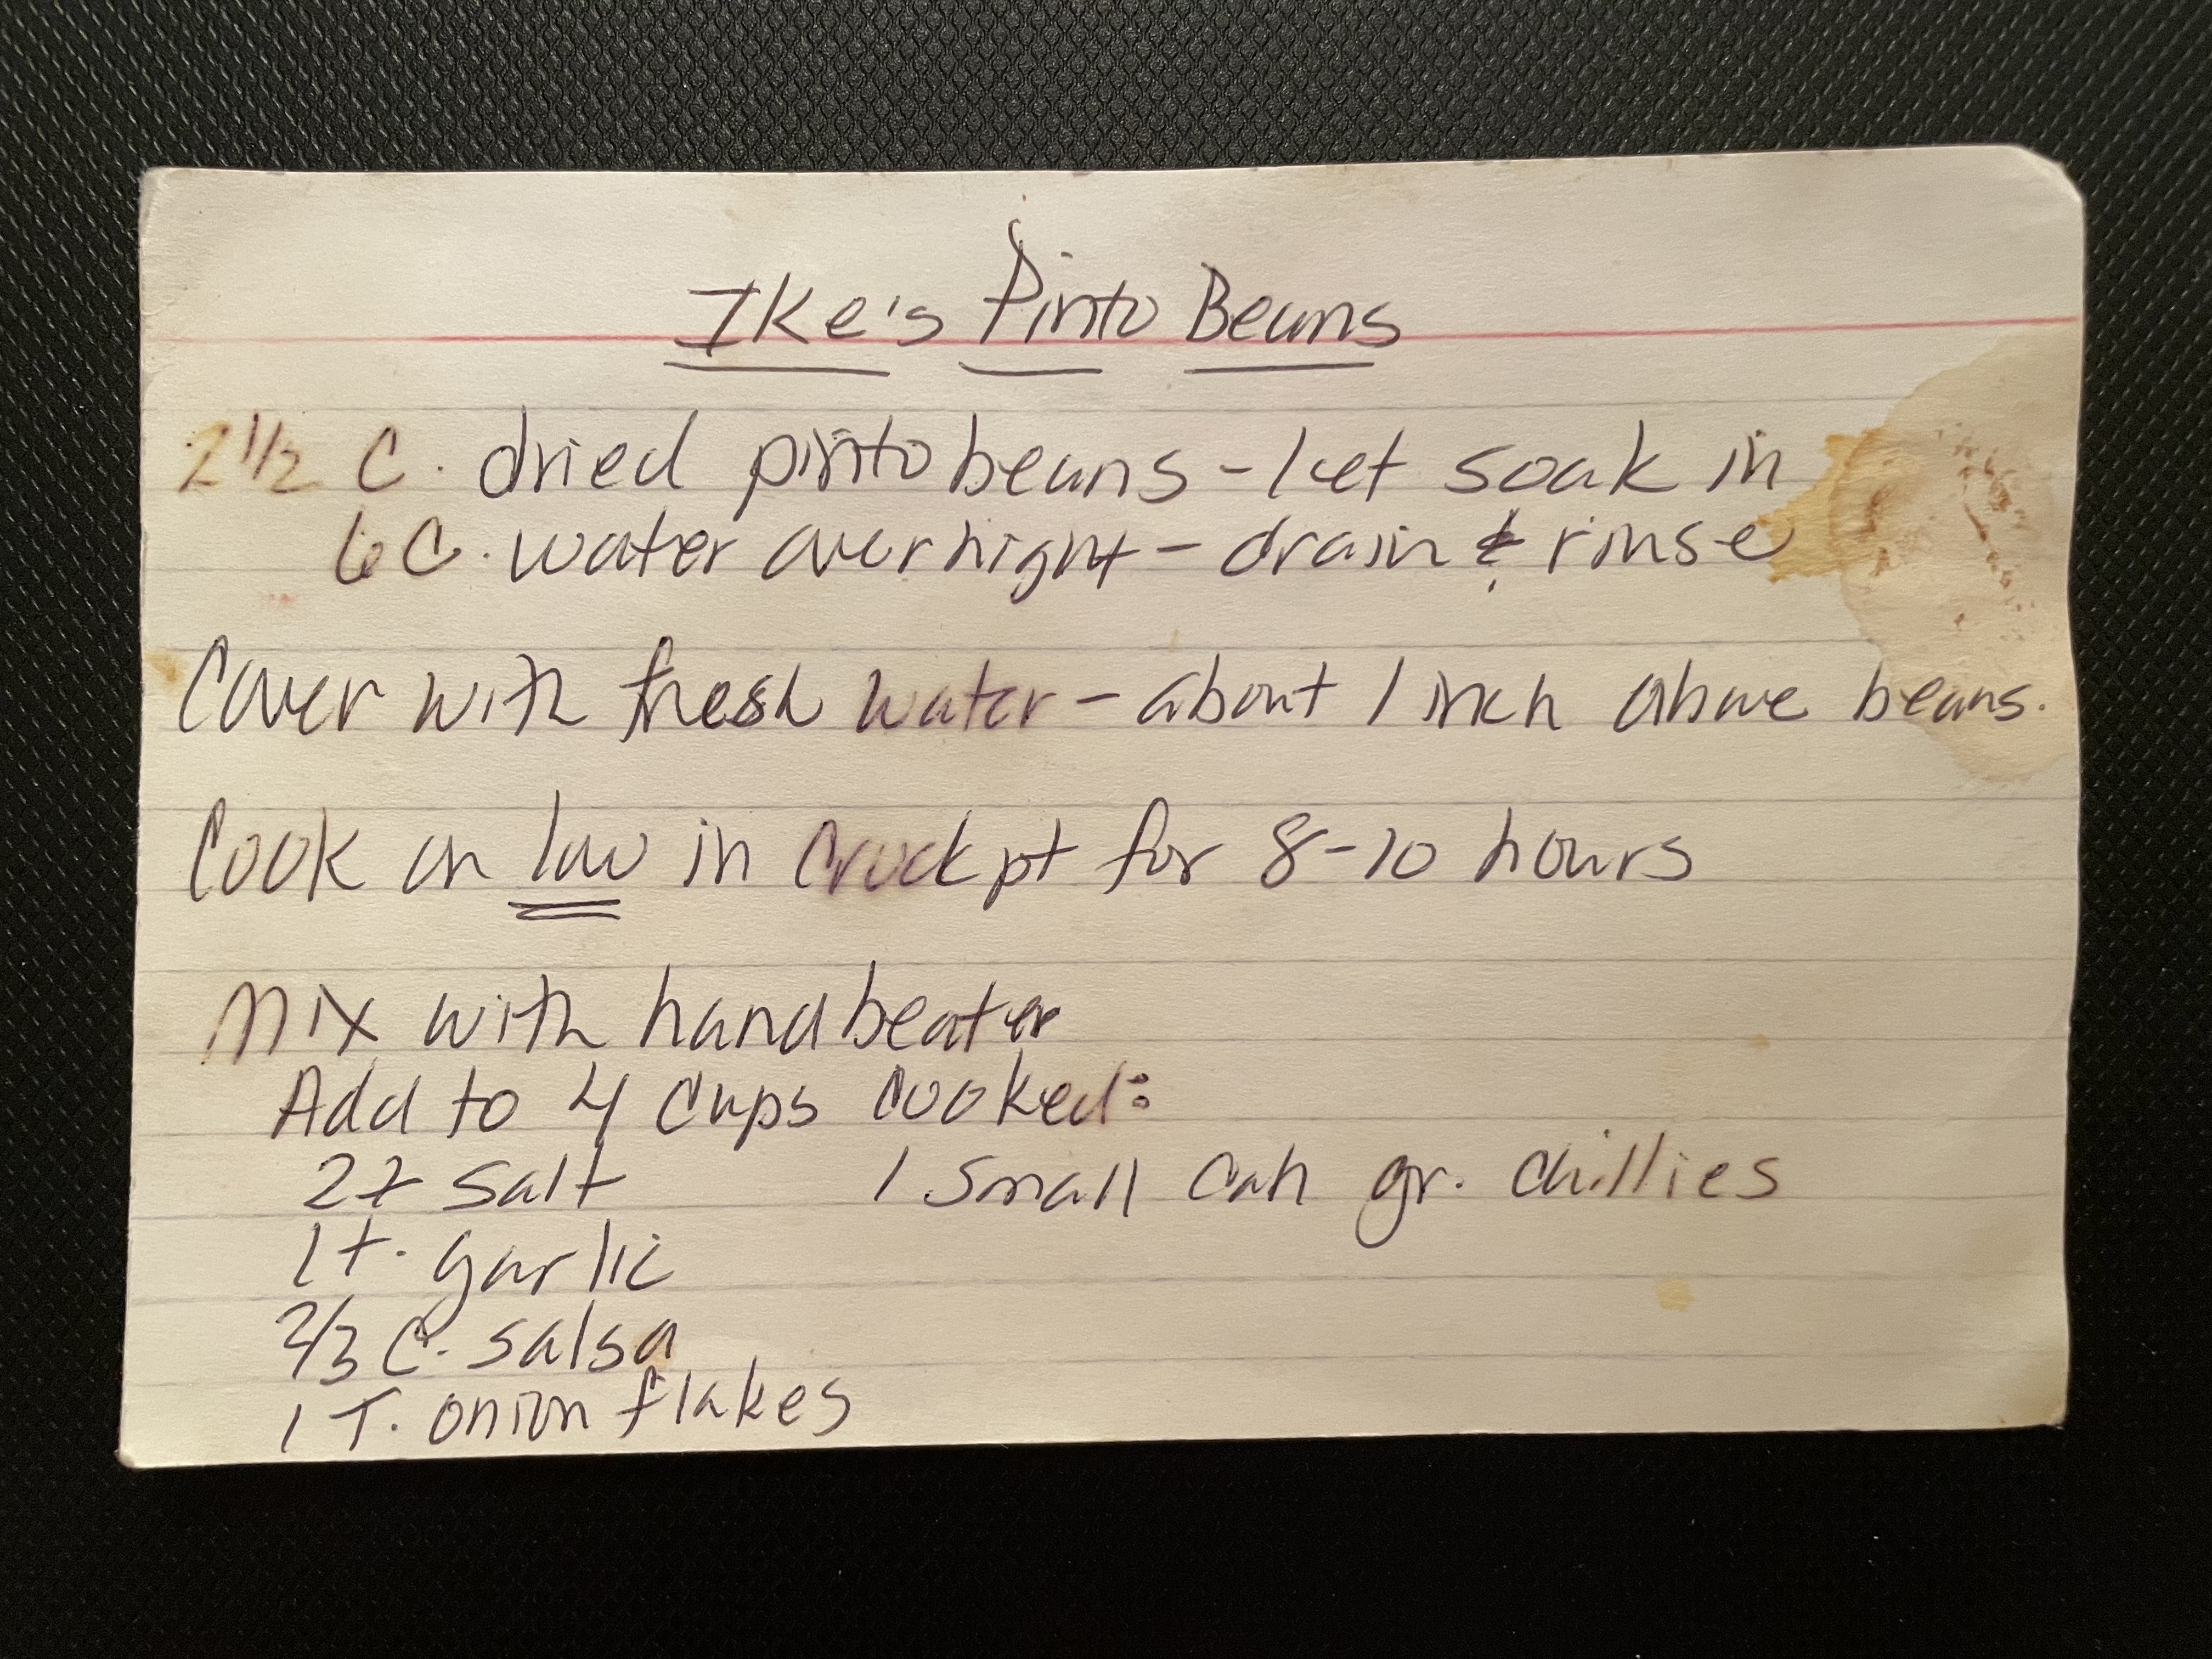 Ike's Pinto Beans
2 1/2 C. dried pinto beans - let soak in
6 C. water overnight - drain & rinse
Cover with fresh water - about 1 inch above beans.
Cook on low in Crock pt for 8-10 hours
Mix with hand beater
Add to 4 cups cooked:
2 t salt 1 small can gr. chillies
1 t. garlic
2/3 C. salsa
1 T. onion flakes